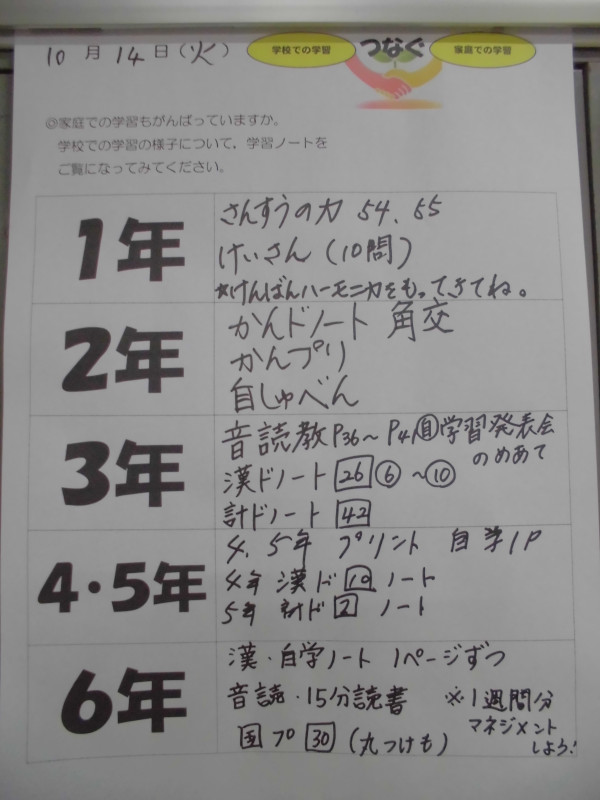 10月14日(火)
学校での学習 つなぐ 家庭での学習
◎家庭での学習もがんばっていますか。
学校での学習の様子について，学習ノートを
ご覧になってみてください。
1年
さんすうの力 54、55
けいさん(10問)
*けんばんハーモニカをもってきてね。
2年
かんドノート 角交
かんプリ
自しゅべん
3年
音読教P36〜P41 自学習発表会
のめあて
漢ドノート 26 ⑥〜⑩
計ドノート 42
4・5年
4、5年 プリント 自学1P
4年 漢ド 10 ノート
5年 計ド 2 ノート
6年
漢・自学ノート 1ページずつ
音読・15分読書 ※1週間分
マネジメント
しよう!
国プ 30 (丸つけも)